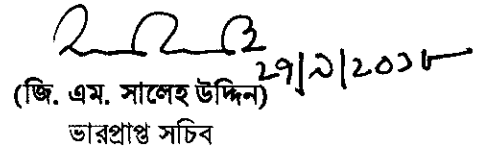 ২৭/৯/২০১৮
(জি. এম. সালেহ উদ্দিন)
ভারপ্রাপ্ত সচিব